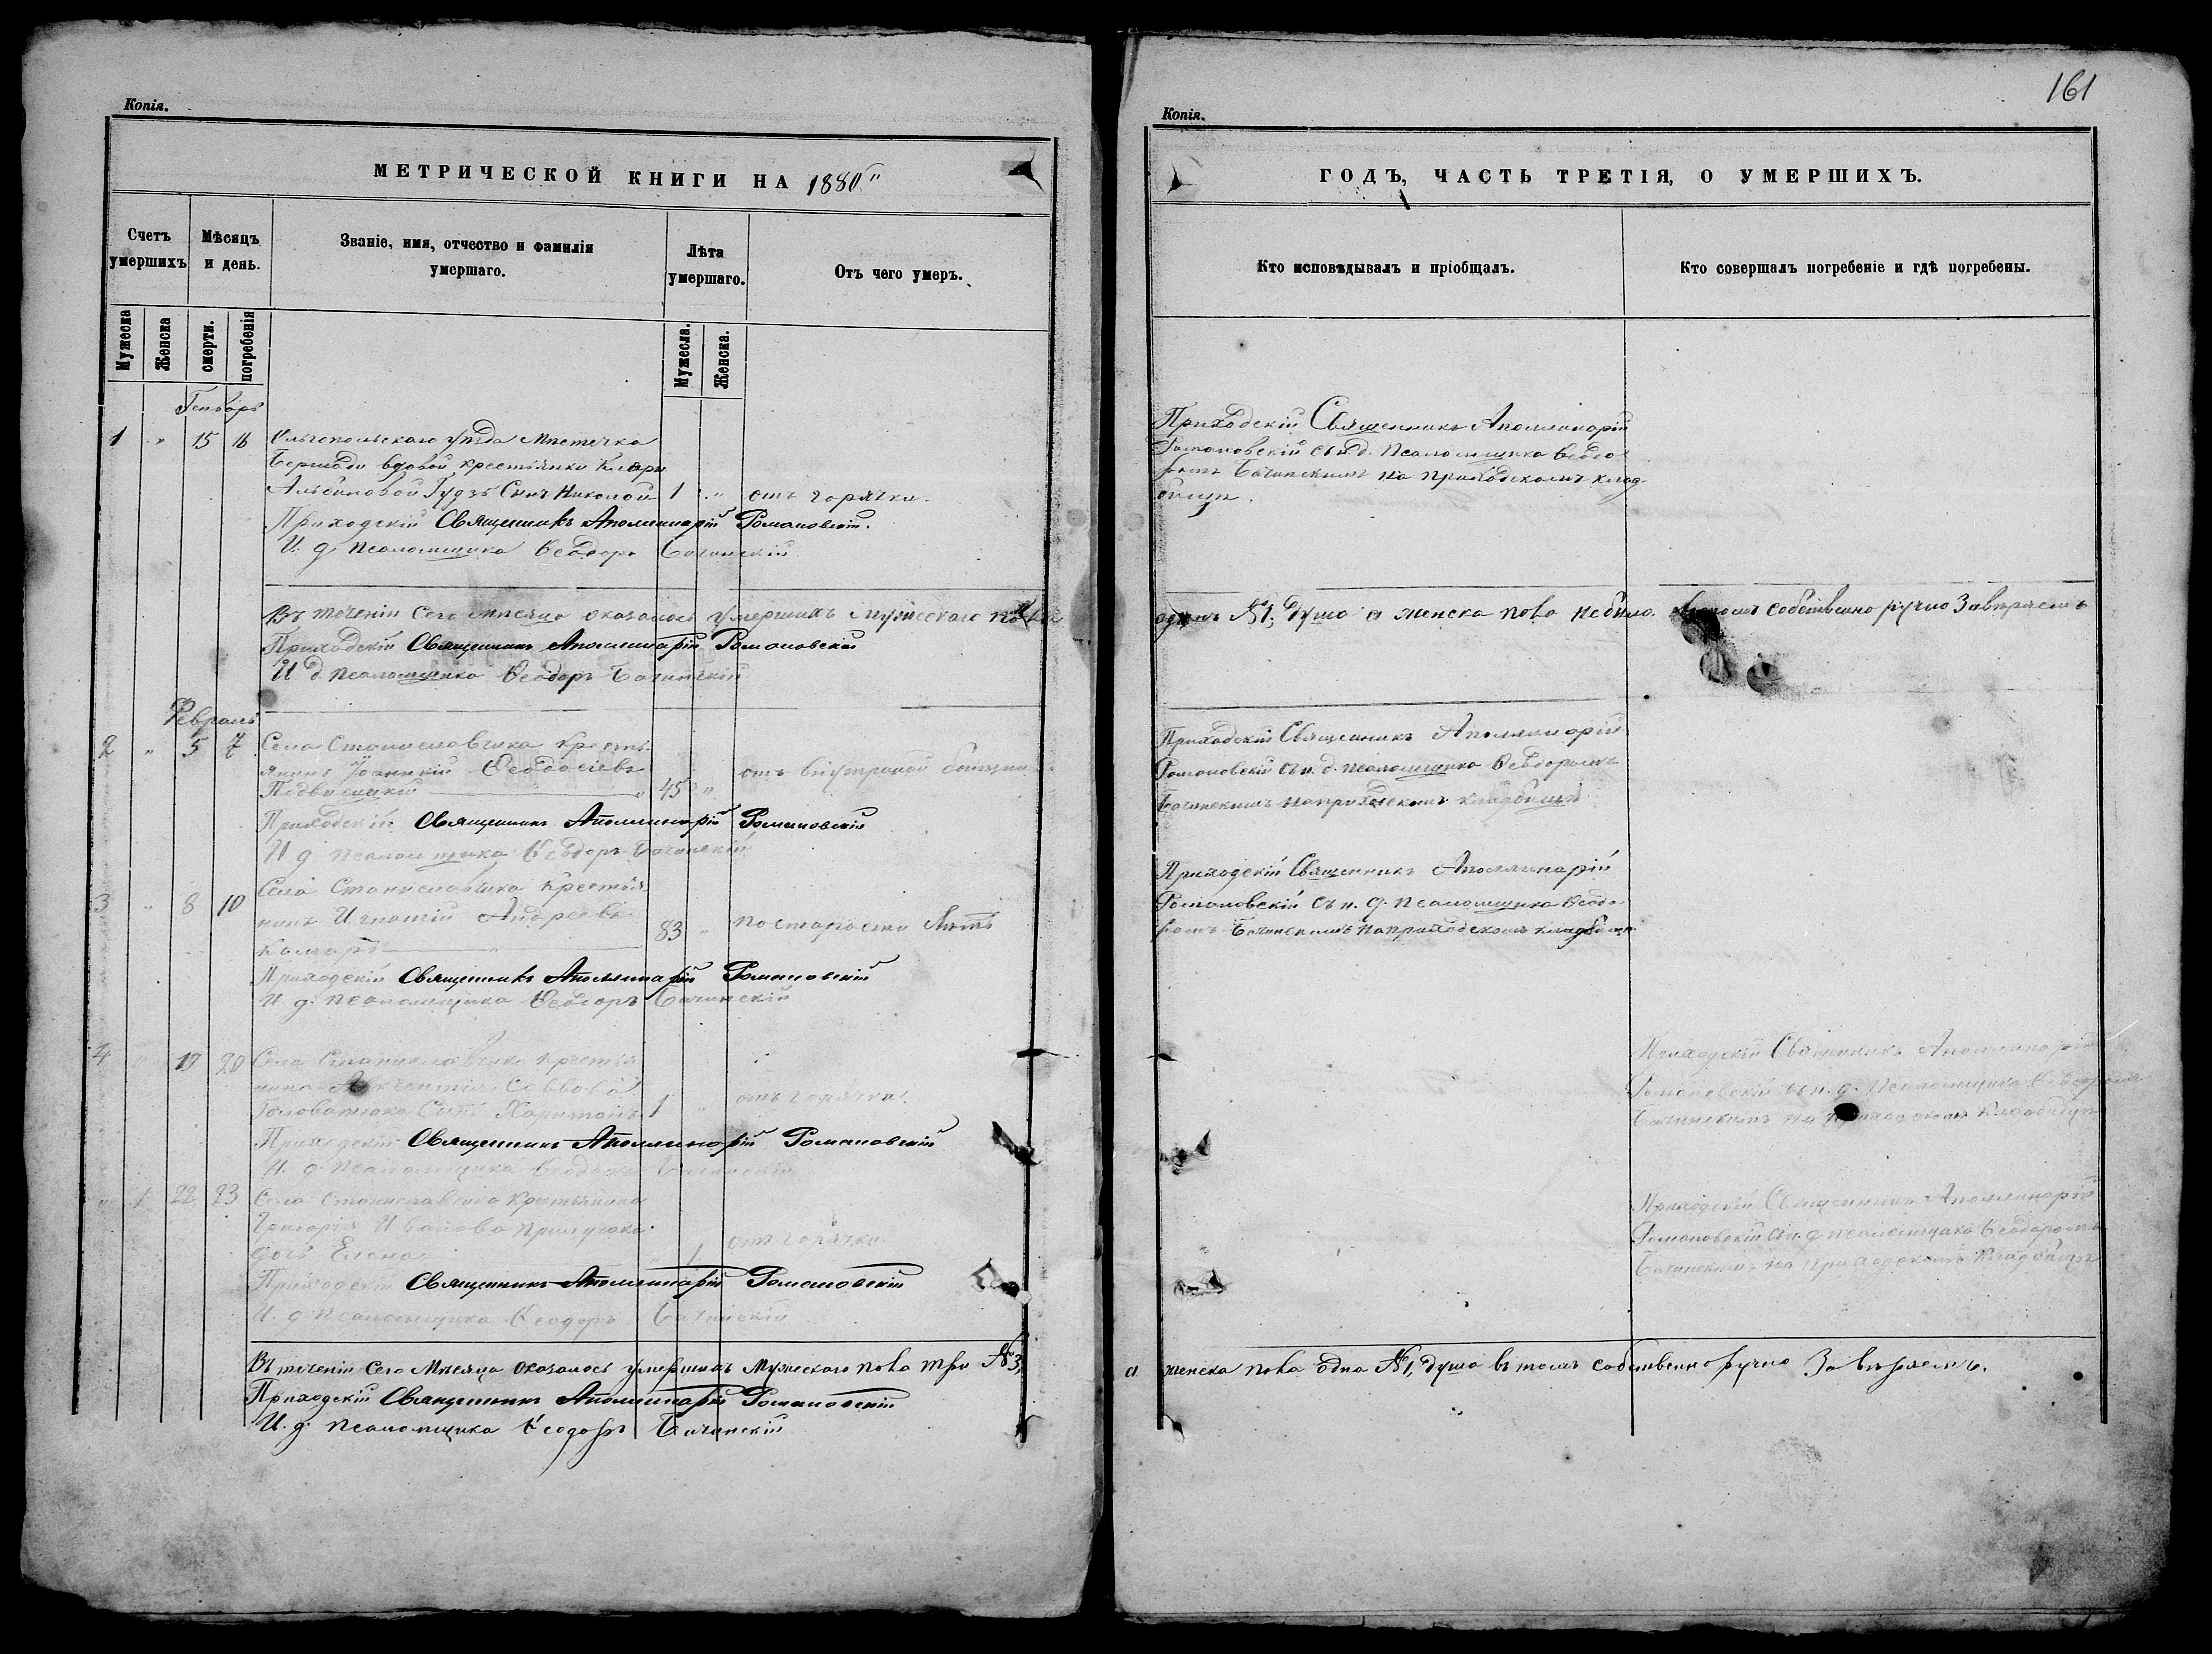 Копія.
МЕТРИЧЕСКОЙ КНИГИ НА 1880
Счетъ умершихъ
Мѣсяцъ и день.
Званіе, имя, отчество и фамилія умершаго.
Лѣта умершаго.
Отъ чего умеръ.
Мужеска
Женска
смерти.
погребенія
Мужесла.
Женска.
Генварь
1 " 15 16 Ольгопольскаго уѣзда Мѣстечка
Бершади вдовой крестьянки
Альбиновой Гудзь Сынъ Николай 1 " отъ горячки.
Приходскій Священникъ Аполлинарій Романовскій.
И. д. Псаломщика Ѳеодоръ Бачинскій
Въ теченіи Сего Мѣсяца оказалось умершихъ Мужескаго пола
Приходскій Священникъ Аполлинарій Романовскій
И д. Псаломщика Ѳеодоръ Бачинскій
Февраль
2 " 5 7 Села Станиславчика крестья
нинъ Іоанікій Ѳеодосіевъ отъ внутреной болѣзни
45 "
Приходскій Священникъ Аполлинарій Романовскій
И д. Псаломщика Ѳеодоръ Бачинскій
3 " 8 10 Села Станиславчика Крестья
нинъ Игнатій Андреевъ
Комаръ 83 " по старости лѣтъ
Приходскій Священникъ Аполлинарій Романовскій
И. д. Псаломщика Ѳеодоръ Бачинскій
4 " 19 20 Села Станиславчика Крестья
нина Саввова
Сынъ Харитонъ 1 " отъ горячки.
Приходскій Священникъ Аполлинарій Романовскій
И. д. Псаломщика Ѳеодоръ Бачинскій
" 1 22 23 Села Станиславчика Крестьянина
Григорія Иванова
дочь Елена " 1 отъ горячки
Приходскій Священникъ Аполлинарій Романовскій
И. д. Псаломщика Ѳеодоръ Бачинскій
Въ теченіи Сего Мѣсяца оказалось умершихъ Мужескаго пола три №3,
Приходскій Священникъ Аполлинарій Романовскій
И. д. Псаломщика Ѳеодоръ Бачинскій
161
Копія.
ГОДЪ, ЧАСТЬ ТРЕТІЯ, О УМЕРШИХЪ.
Кто исповѣдывалъ и пріобщалъ.
Кто совершалъ погребеніе и гдѣ погребены.
Приходскій Священникъ Аполлинарій
Романовскій съ и д. Псаломщика Ѳеодо
ромъ Бачинскимъ на приходскомъ клад
бищѣ.
одинъ №1, душа а женска пола небыло. собственно ручно Завѣряемъ
Приходскій Священникъ Аполлинарій
Романовскій съ и. д. псаломщика Ѳеодоромъ
Бачинскимъ на приходскомъ кладбищѣ
Приходскій Священникъ Аполлинарій
Романовскій съ и. д. Псаломщика Ѳеодо
ромъ Бачинскимъ на приходскомъ кладбищѣ
Приходскій Священникъ Аполлинарій
Романовскій съ и. д. Псаломщика Ѳеодоромъ
Бачинскимъ на приходскомъ Кладбищѣ
Приходскій Священникъ Аполлинарій
Романовскій съ и. д. псаломщика Ѳеодоромъ
Бачинскимъ на приходскомъ Кладбищѣ
а женска пола одна №1, душа въ томъ собственно ручно Завѣряемъ.